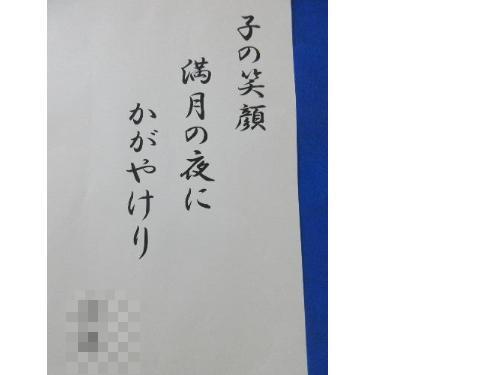 子の笑顔
満月の夜に
かがやけり